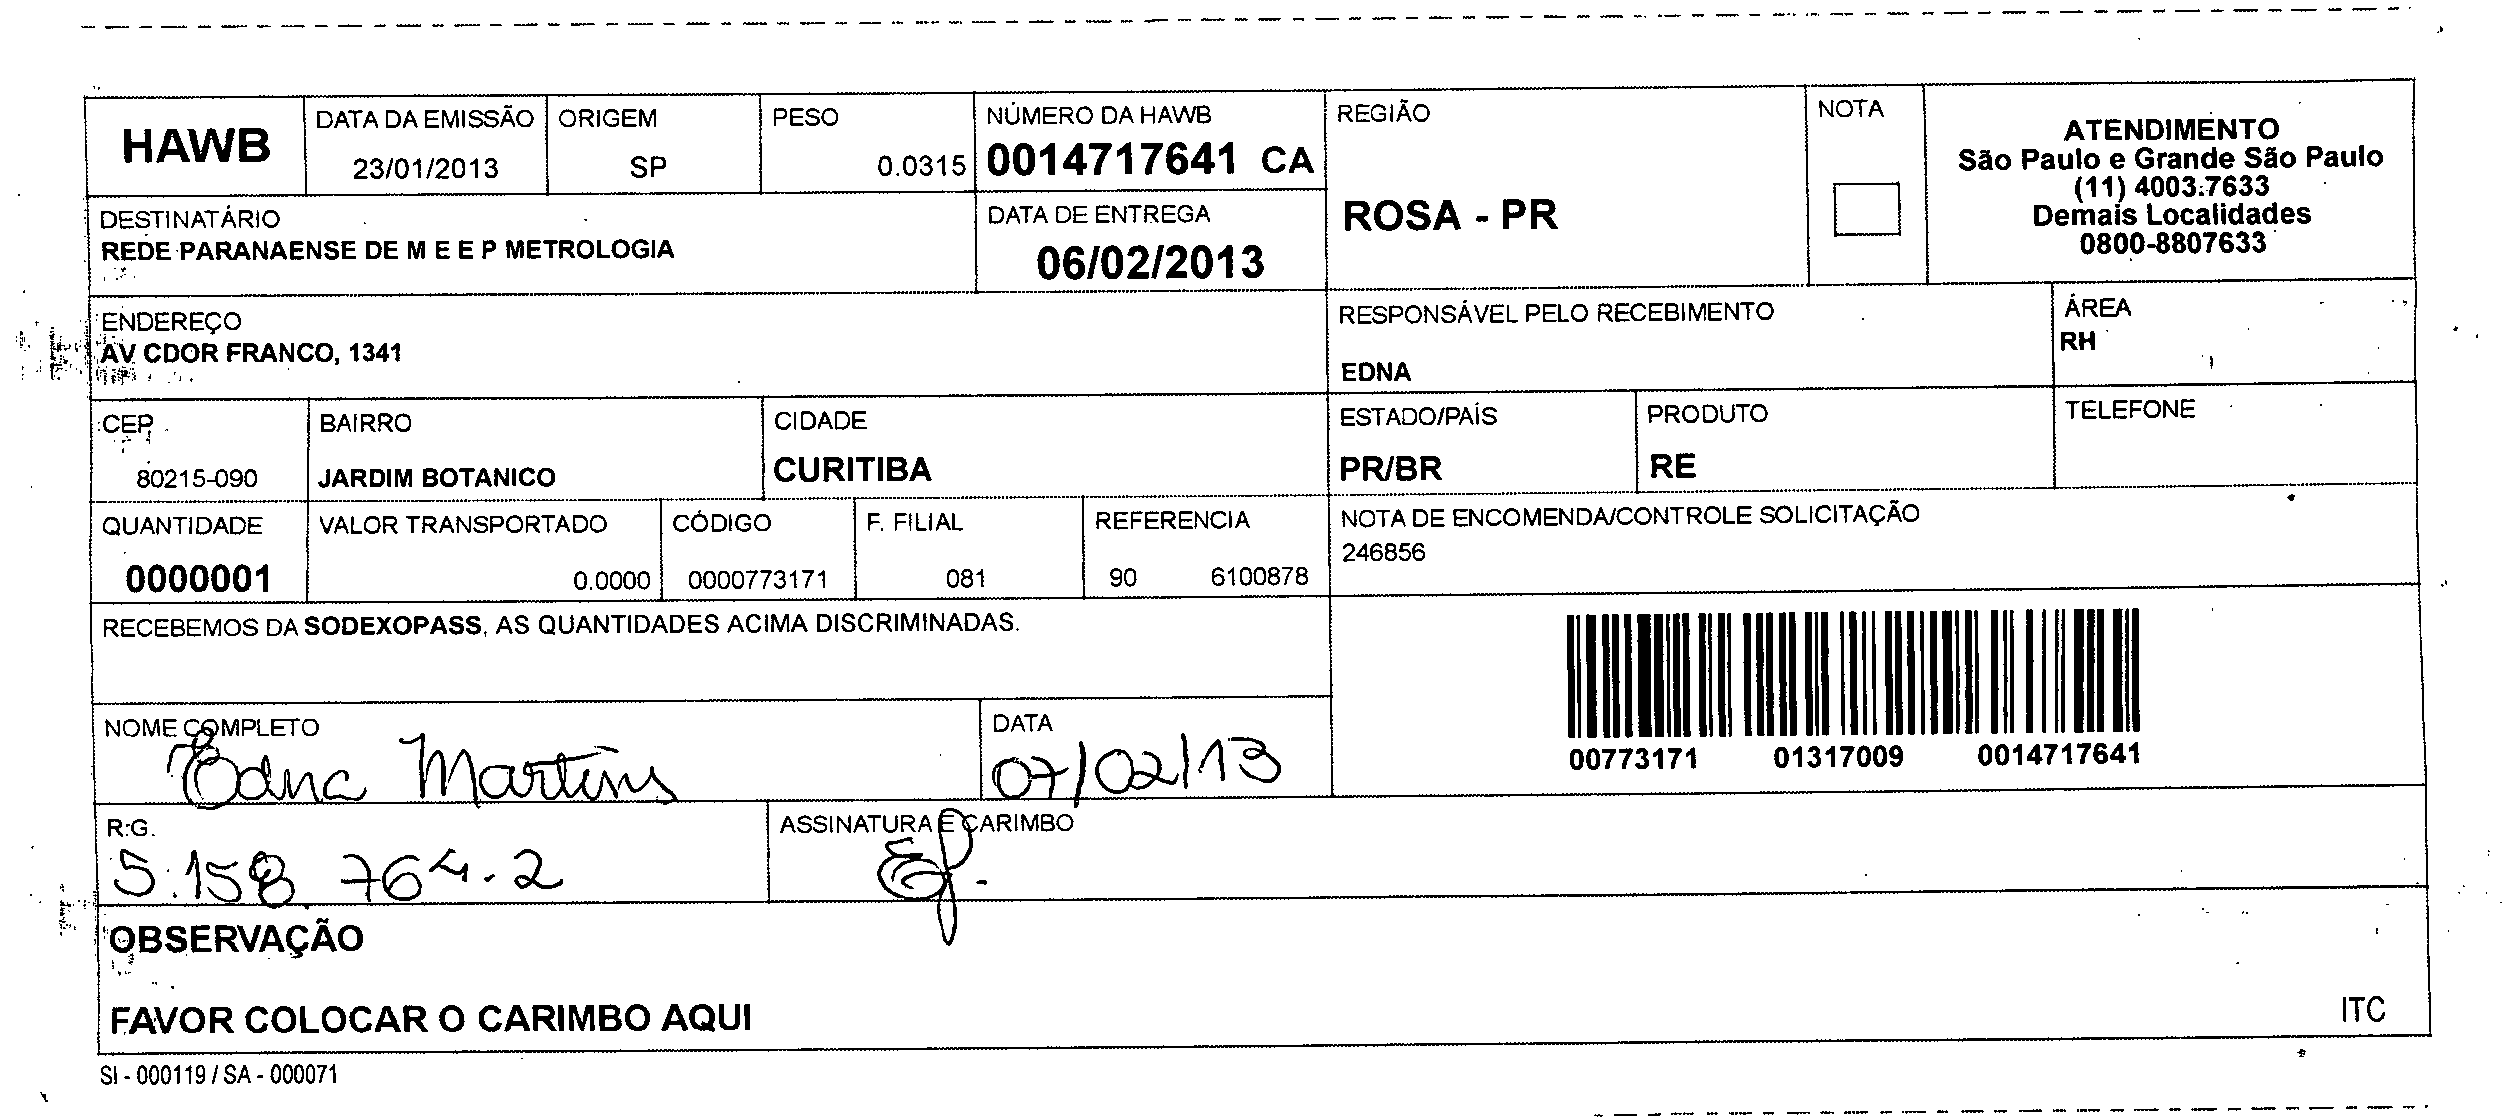 HAWB
DATA DA EMISSÃO
23/01/2013
ORIGEM
SP
PESO
0.0315
NÚMERO DA HAWB
0014717641 CA
REGIÃO
ROSA - PR
NOTA
ATENDIMENTO
São Paulo e Grande São Paulo
(11) 4003.7633
Demais Localidades
0800-8807633
DESTINATÁRIO
REDE PARANAENSE DE M E E P METROLOGIA
DATA DE ENTREGA
06/02/2013
ENDEREÇO
AV CDOR FRANCO, 1341
RESPONSÁVEL PELO RECEBIMENTO
EDNA
ÁREA
RH
CEP
80215-090
BAIRRO
JARDIM BOTANICO
CIDADE
CURITIBA
ESTADO/PAÍS
PR/BR
PRODUTO
RE
TELEFONE
QUANTIDADE
0000001
VALOR TRANSPORTADO
0.0000
CÓDIGO
0000773171
F. FILIAL
081
REFERENCIA
90 6100878
NOTA DE ENCOMENDA/CONTROLE SOLICITAÇÃO
246856
RECEBEMOS DA SODEXOPASS, AS QUANTIDADES ACIMA DISCRIMINADAS.
00773171 01317009 0014717641
NOME COMPLETO
Edna Martins
DATA
07/02/13
R.G.
5.158.764-2
ASSINATURA E CARIMBO
OBSERVAÇÃO
FAVOR COLOCAR O CARIMBO AQUI
ITC
SI - 000119 / SA - 000071